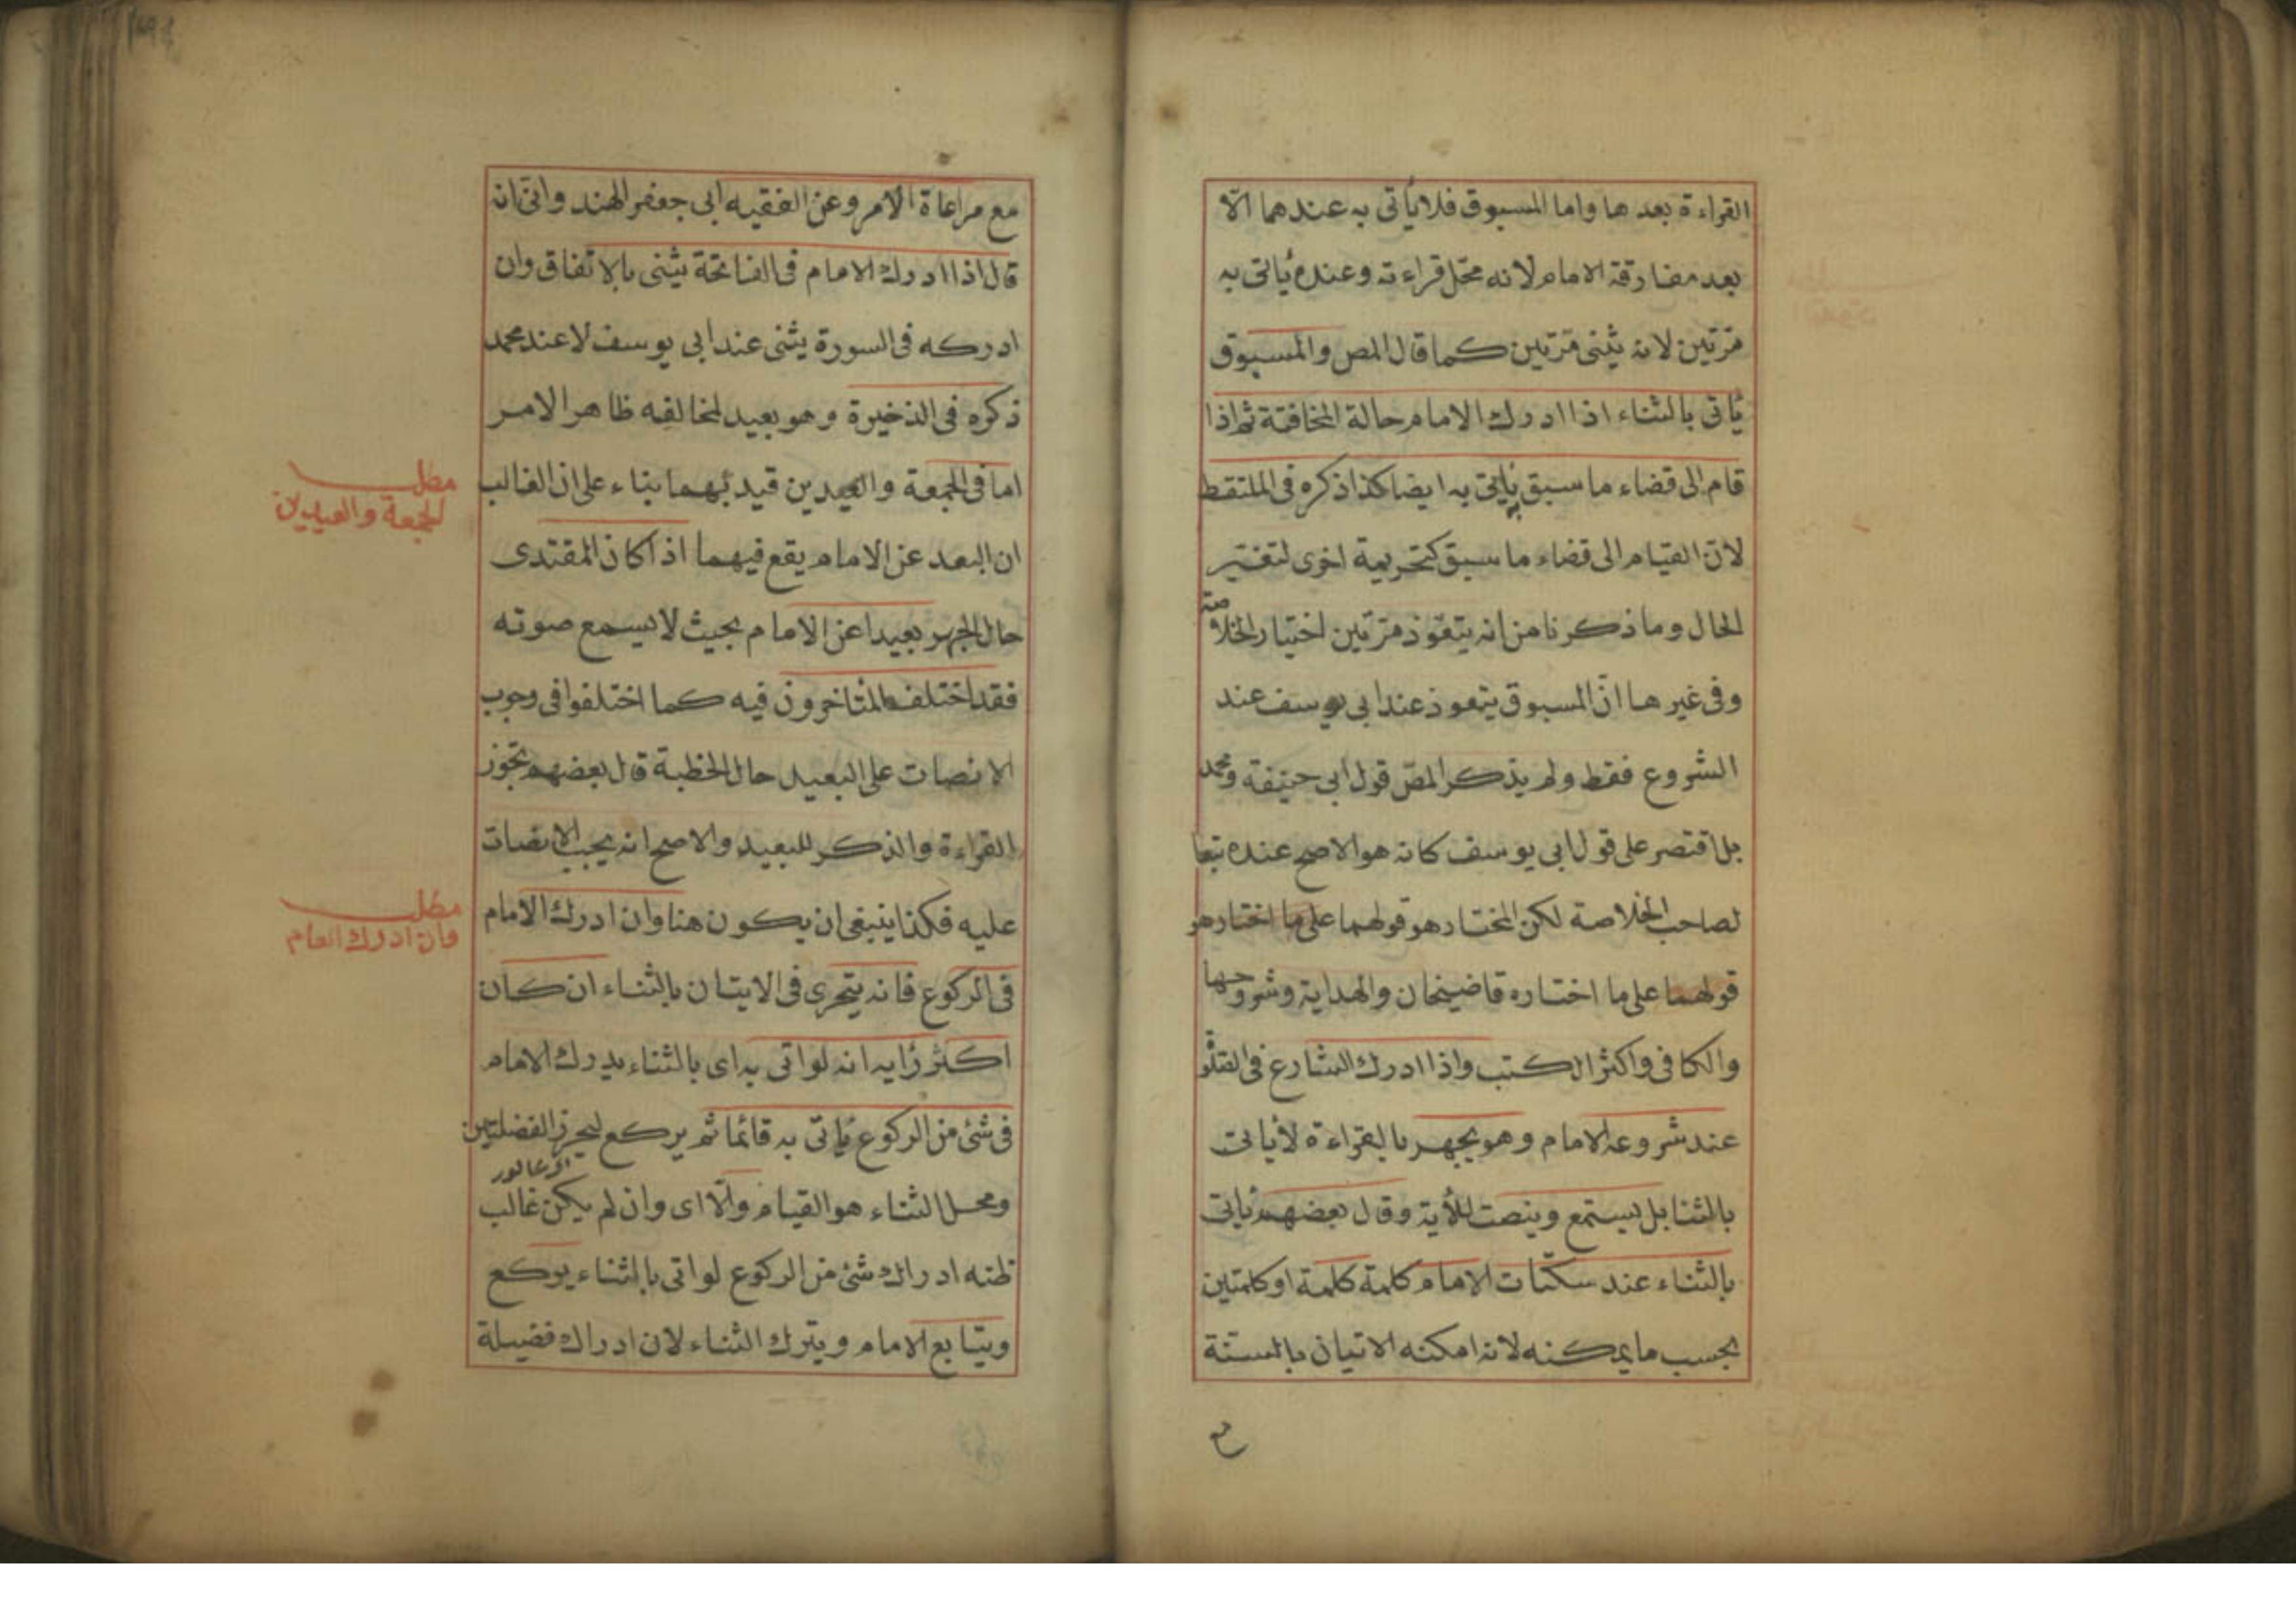 القراءة بعدها واما المسبوق فلا يأتى به عندهما الا
بعد مفارقة الامام لانه محل قراءته وعنده يأتى به
مرّتين لانه يثنى مرّتين كما قال المص والمسبوق
يأتى بالثناء اذا ادرك الامام حالة المخافتة ثم اذا
قام الى قضاء ما سبق يأتى به ايضا كذا ذكره فى الملتقط
لانّ القيام الى قضاء ما سبق كتحريمة اخرى لتغير
الحال وما ذكرنا من انه يتعوّذ مرّتين اختيار الخلاصة
وفى غيرها انّ المسبوق يتعوذ عند ابى يوسف عند
الشروع فقط ولم يذكر المصّ قول ابى حنيفة ومحمد
بل اقتصر على قول ابى يوسف كانه هو الاصح عنده تبعا
لصاحب الخلاصة لكن المختار هو قولهما على ما اختار هو
قولهما على ما اختاره قاضيخان والهداية وشروحها
والكافى واكثر الكتب واذا ادرك الشارع فى
عند شروعه الامام وهو يجهر بالقراءة لا يأتى
بالثنا بل يستمع وينصت للأية وقال بعضهم يأتى
بالثناء عند سكتات الامام كلمة كلمة او كلمتين
بحسب ما يمكنه لانه امكنه الاتيان بالسنّة
مع
مع مراعاة الامر وعن الفقيه ابى جعفر الهند وانى انه
قال اذا ادرك الامام فى الفاتحة يثنى بالاتفاق وان
ادركه فى السورة يثنى عند ابى يوسف لا عند محمد
ذكره فى الذخيرة وهو بعيد لمخالفه ظاهر الامر
اما فى الجمعة والعيدين قيد بهما بناء على ان الغالب
ان البعد عن الامام يقع فيهما اذا كان المقتدى
حال الجهر بعيدا عن الامام بحيث لا يسمع صوته
فقد اختلف المتأخرون فيه كما اختلفوا فى وجوب
الانصات على البعيد حال الخطبة قال بعضهم تجوز
القراءة والذكر للبعيد والاصح انه يجب الانصات
عليه فكذا ينبغى ان يكون هنا وان ادرك الامام
فى الركوع فانه يتحرى فى الايتان بالثناء ان كان
اكثر رأيه انه لو اتى به اى بالثناء يدرك الامام
فى شئ من الركوع يأتى به قائما ثم يركع ليحرز الفضليتين
ومحل الثناء هو القيام والّا اى وان لم يكن غالب
ظنه ادراك شئ من الركوع لو اتى بالثناء يركع
ويتابع الامام ويترك الثناء لان ادراك فضيلة
مطلب
الجمعة والعيدين
مطلب
وان ادرك